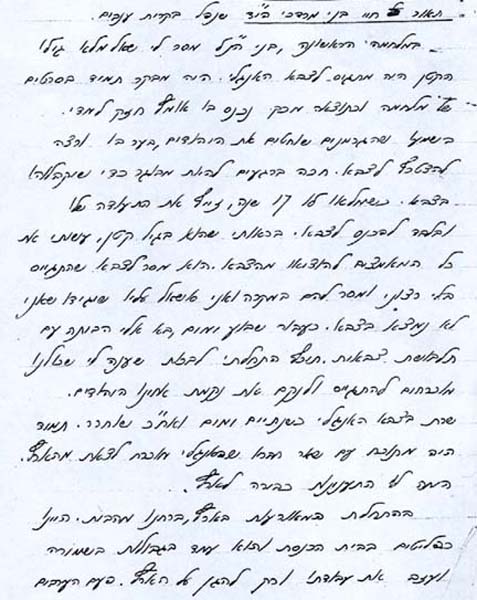 תאור של חיי בני מרדכי הי״ד שנפל בקרית ענבים.
במלחמה הראשונה, בני הנ״ל מסר לי שאלמלא גילו
הקטן היה מתגיס לצבא האנגלי. היה מבקר תמיד בסרטים
של מלחמה וכתוצאה מכך נכנס בו אומץ חזק למדי.
בישמעו שהגרמנים שוחטים את היהודים, בער בו ורצה
להצטרף לצבא. חכה ברגעים להיות מבוגר כדי שיקבלוהו
בצבא. כשמלאו לו 17 שנה, זייף את התעודה שלו
ובלבד להכנס לצבא. בראותי שהוא בגיל קטן, עשיתי את
כל המאמצים להוציאו מהצבא. הוא מסר לצבא שהתגייס
בלי רצוני ומסר להם במקרה ואני אשאל עליו שיגידו שאני
לא נמצא בצבא. כעבור שבוע ימים, בא אלי הביתה עם
תלבושת צבאית. תיכף התחלתי לבכות שענה לי שכולנו
מוכרחים להתגייס ולנקם את נקמת אחינו היהודים.
שרת בצבא האנגלי כשנתיים ימים ואח״כ שוחרר. תמיד
היה מתוכח עם שאר חבריו שהאנגלי מוכרח לצאת מהארץ.
היתה לו התענינות כבירה לארץ.
בהתחלת המאורעות בארץ, ברחנו מהבית. היינו
כפליטים בבית הכנסת והוא עמד בגבולות בשמירה
ועזב את עבודתו ורק להגן על הארץ. פעם הערבים